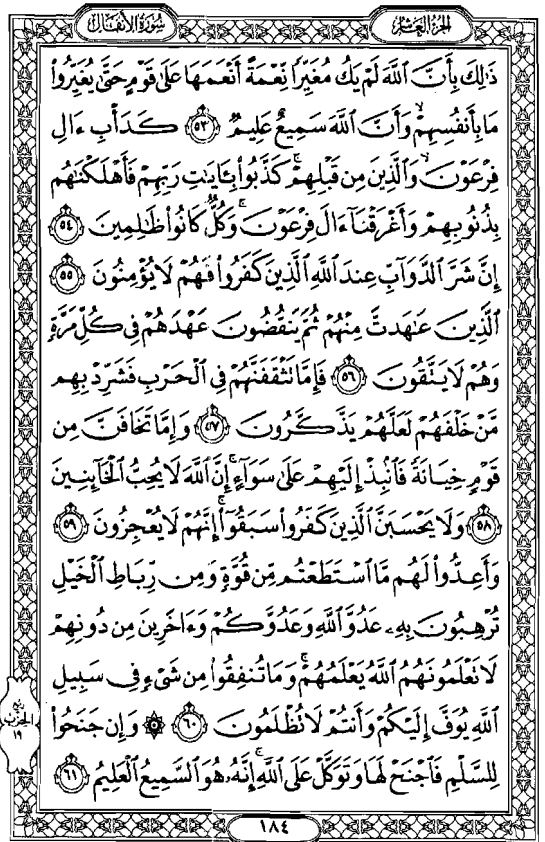 سُورَةُ الأَنفَال
الجُزءُ العَاشِر
ذَٰلِكَ بِأَنَّ ٱللَّهَ لَمْ يَكُ مُغَيِّرًا نِّعْمَةً أَنْعَمَهَا عَلَىٰ قَوْمٍ حَتَّىٰ يُغَيِّرُوا۟
مَا بِأَنفُسِهِمْ ۙ وَأَنَّ ٱللَّهَ سَمِيعٌ عَلِيمٌ ٥٣ كَدَأْبِ ءَالِ
فِرْعَوْنَ ۙ وَٱلَّذِينَ مِن قَبْلِهِمْ ۚ كَذَّبُوا۟ بِـَٔايَـٰتِ رَبِّهِمْ فَأَهْلَكْنَـٰهُم
بِذُنُوبِهِمْ وَأَغْرَقْنَآ ءَالَ فِرْعَوْنَ ۚ وَكُلٌّ كَانُوا۟ ظَـٰلِمِينَ ٥٤
إِنَّ شَرَّ ٱلدَّوَآبِّ عِندَ ٱللَّهِ ٱلَّذِينَ كَفَرُوا۟ فَهُمْ لَا يُؤْمِنُونَ ٥٥
ٱلَّذِينَ عَـٰهَدتَّ مِنْهُمْ ثُمَّ يَنقُضُونَ عَهْدَهُمْ فِى كُلِّ مَرَّةٍ
وَهُمْ لَا يَتَّقُونَ ٥٦ فَإِمَّا تَثْقَفَنَّهُمْ فِى ٱلْحَرْبِ فَشَرِّدْ بِهِم
مَّنْ خَلْفَهُمْ لَعَلَّهُمْ يَذَّكَّرُونَ ٥٧ وَإِمَّا تَخَافَنَّ مِن
قَوْمٍ خِيَانَةً فَٱنۢبِذْ إِلَيْهِمْ عَلَىٰ سَوَآءٍ ۚ إِنَّ ٱللَّهَ لَا يُحِبُّ ٱلْخَآئِنِينَ
٥٨ وَلَا يَحْسَبَنَّ ٱلَّذِينَ كَفَرُوا۟ سَبَقُوٓا۟ ۚ إِنَّهُمْ لَا يُعْجِزُونَ ٥٩
وَأَعِدُّوا۟ لَهُم مَّا ٱسْتَطَعْتُم مِّن قُوَّةٍ وَمِن رِّبَاطِ ٱلْخَيْلِ
تُرْهِبُونَ بِهِۦ عَدُوَّ ٱللَّهِ وَعَدُوَّكُمْ وَءَاخَرِينَ مِن دُونِهِمْ
لَا تَعْلَمُونَهُمُ ٱللَّهُ يَعْلَمُهُمْ ۚ وَمَا تُنفِقُوا۟ مِن شَىْءٍ فِى سَبِيلِ
ٱللَّهِ يُوَفَّ إِلَيْكُمْ وَأَنتُمْ لَا تُظْلَمُونَ ٦٠ ۞ وَإِن جَنَحُوا۟
لِلسَّلْمِ فَٱجْنَحْ لَهَا وَتَوَكَّلْ عَلَى ٱللَّهِ ۚ إِنَّهُۥ هُوَ ٱلسَّمِيعُ ٱلْعَلِيمُ ٦١
ربع
الحزب
١٩
١٨٤